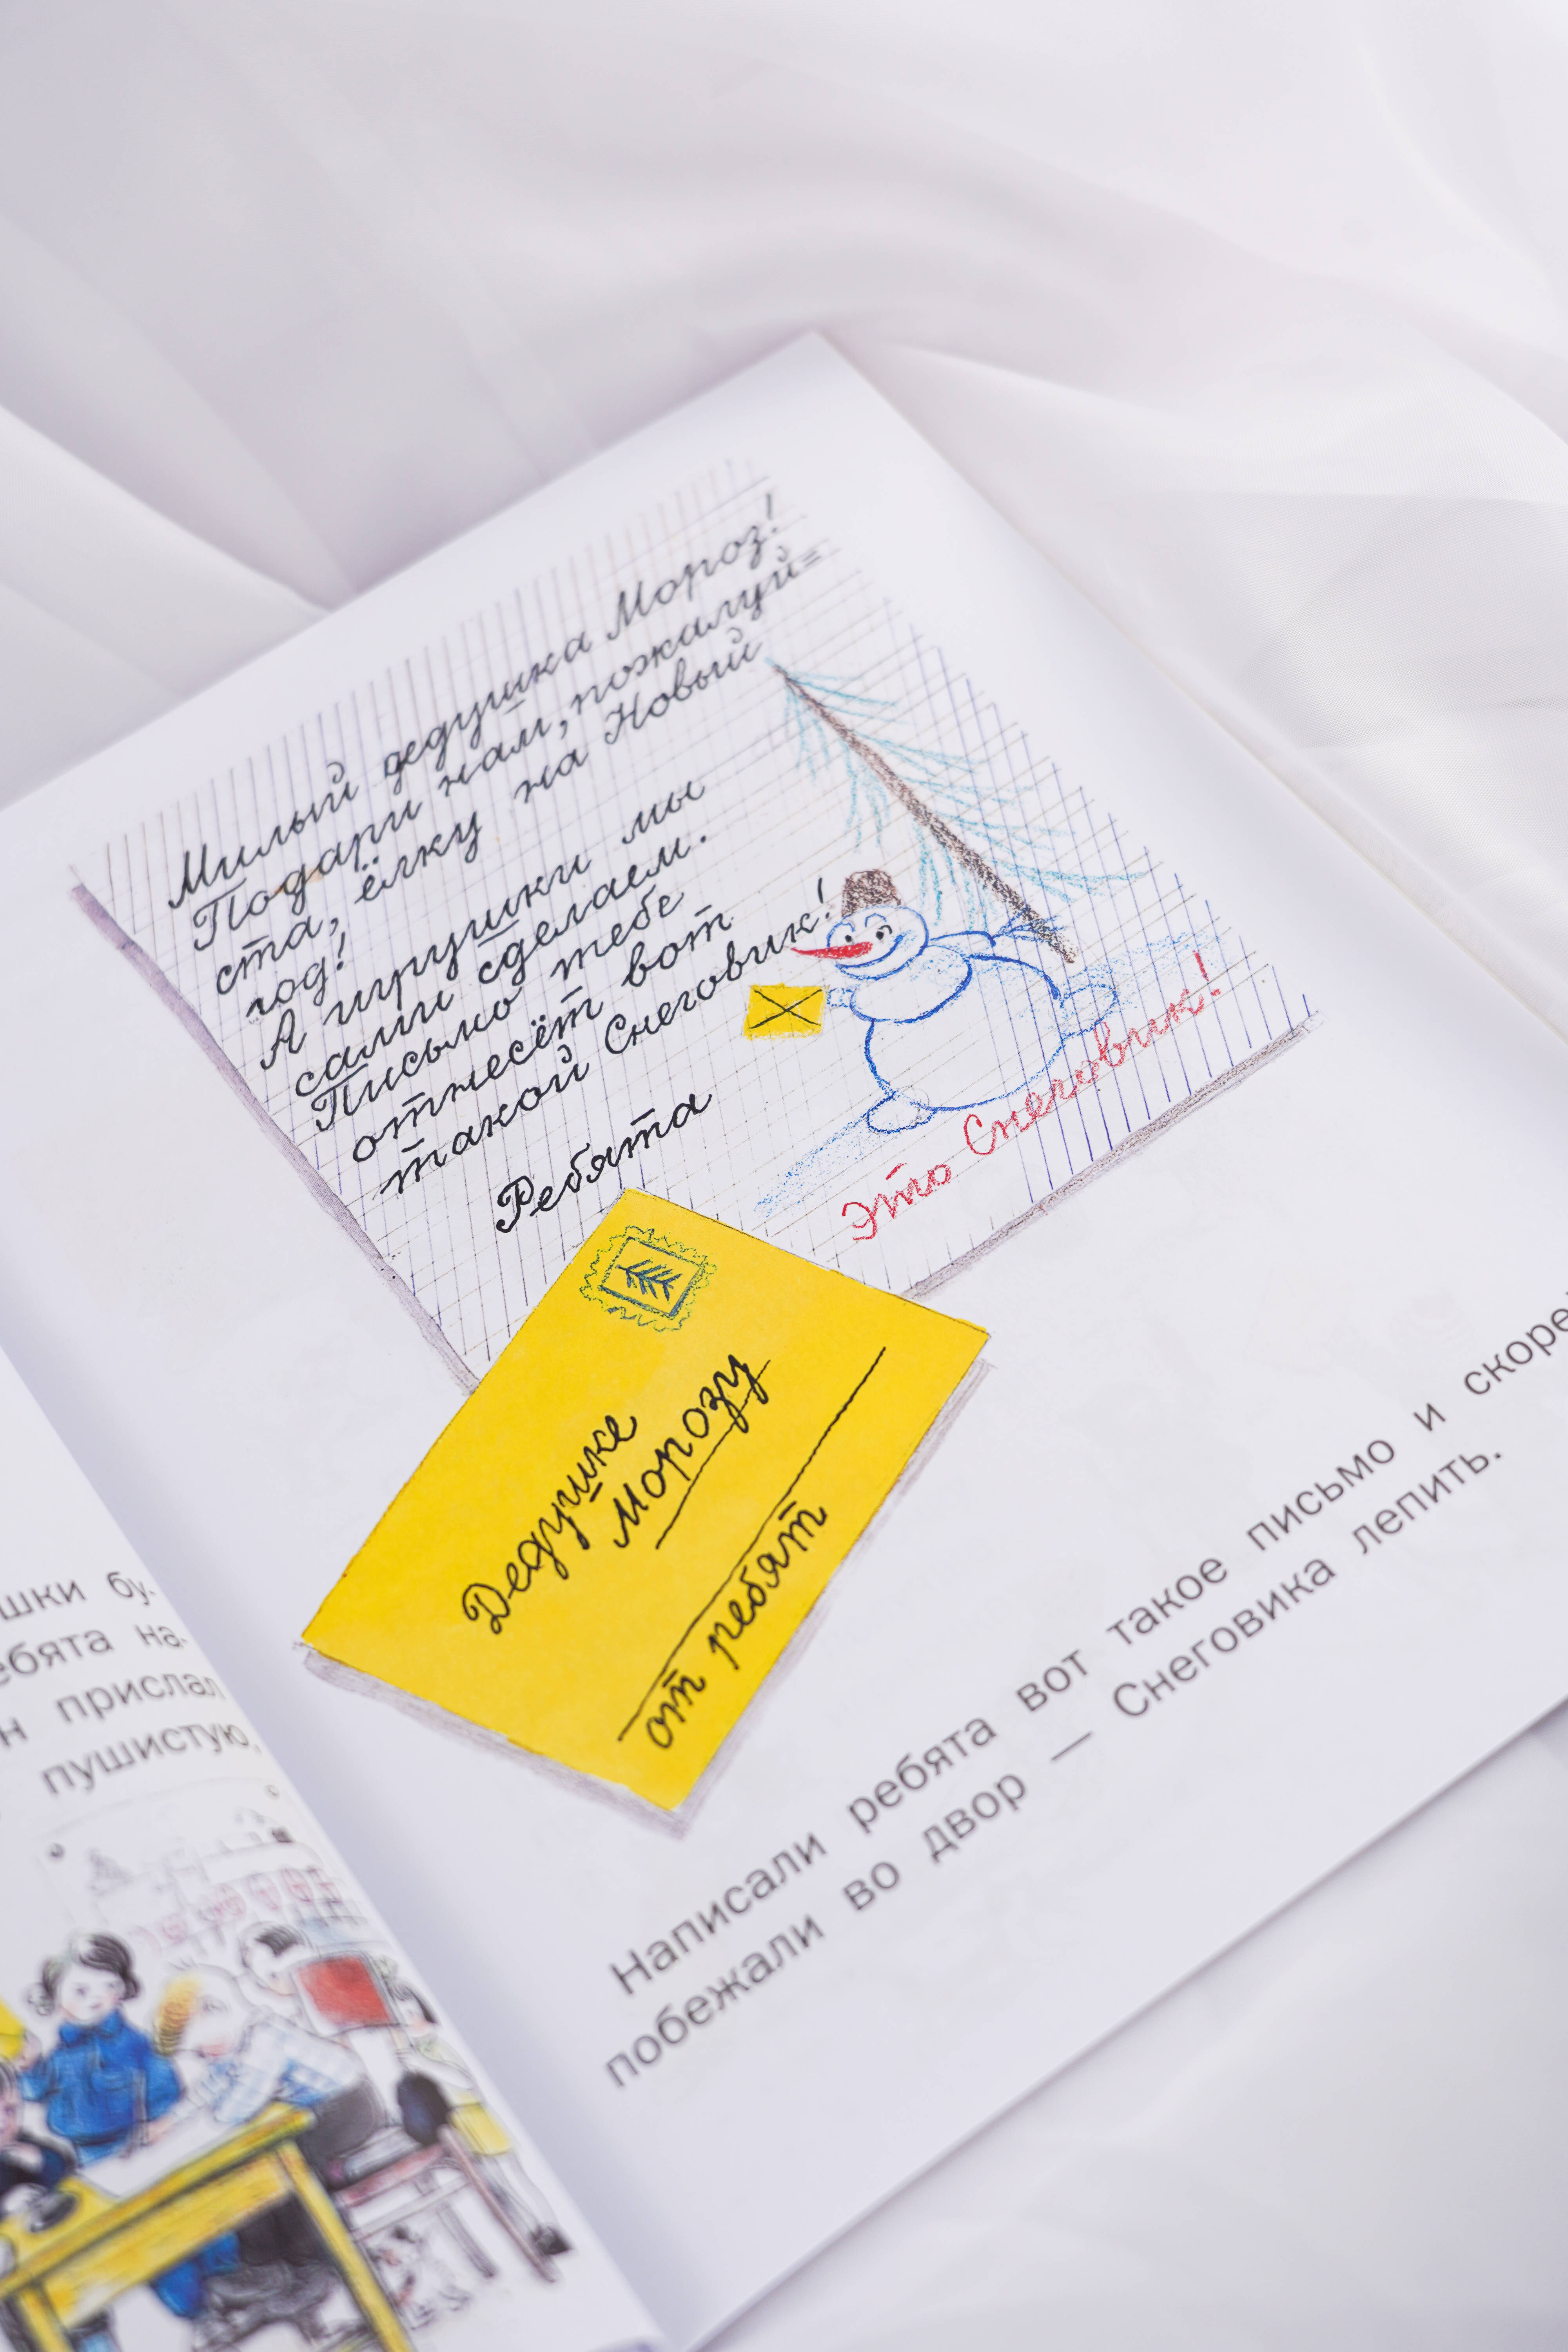 Милый дедушка Мороз!
Подари нам, пожалуй=
ста, ёлку на Новый
год!
А игрушки мы
сами сделаем.
Письмо тебе
отнесёт вот
такой Снеговик!
Ребята
Это Снеговик!
Дедушке
Морозу
от ребят
Написали ребята вот такое письмо и скоре
побежали во двор — Снеговика лепить.
шки бу-
ебята на-
н прислал
пушистую,